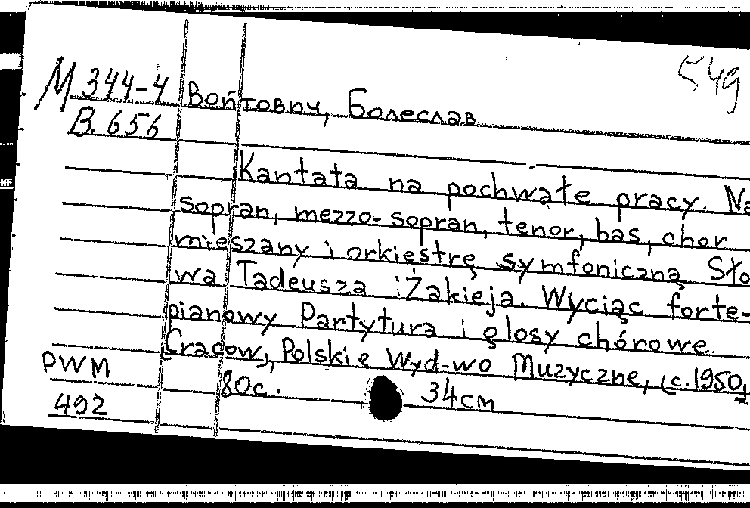 549
M 344-4 Войтович, Болеслав
B. 656
Kantata na pochwałe pracy. Na
sopran, mezzo-sopran, tenor, bas, chor
mieszany i orkiestrę symfoniczną Sło
wa Tadeusza Żakieja. Wyciąc forte-
pianowy Partytura i głosy chórowe.
Cracow, Polskie Wyd-wo Muzyczne, (c.1950)
PWM 80c. 34см
492